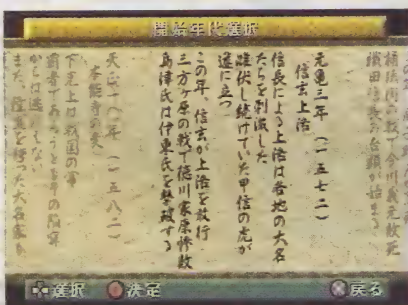 開始年代選択
桶狭間の戦で今川義元敗死
織田信長の台頭が始まる
元亀三年 (一五七二)
信玄上洛
信長による上洛は各地の大名
たちを刺激した
雌伏し続けていた甲信の虎が
遂に立つ
この年、信玄が上洛を敢行
三方ヶ原の戦で徳川家康惨敗
島津氏は伊東氏を撃破する
天正一〇年 (一五八二)
本能寺の変
下克上は戦国の常
覇者であろうともその陥穽
からは逃れえない
また、隆盛を誇った大名家も
選択
決定
戻る